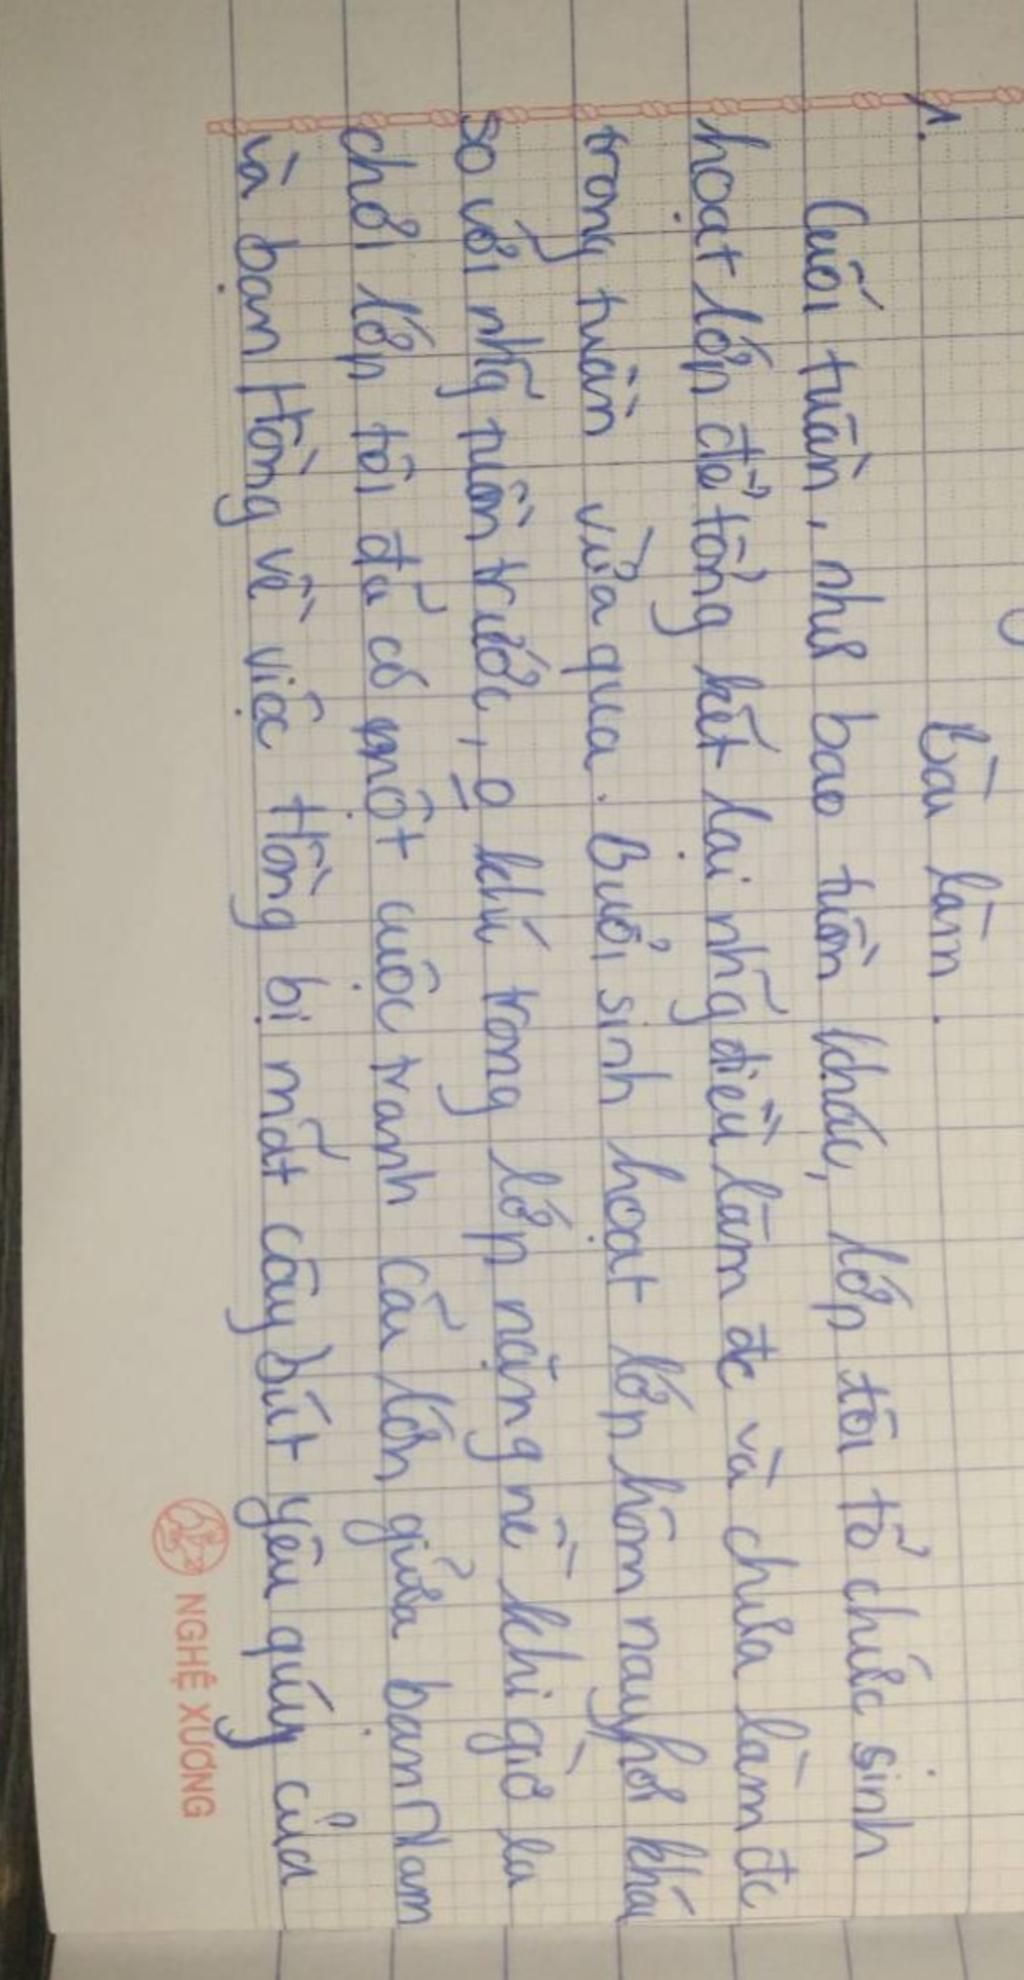 Bài làm.
1.
Cuối tuần, như bao tuần khác, lớp tôi tổ chức sinh
hoạt lớp để tổng kết lại nhg̃ điều làm đc và chưa làm đc
trong tuần vừa qua. Buổi sinh hoạt lớp hôm nay hơi khác
so với nhg̃ tuần trước, o khí trong lớp nặng nề khi giờ ra
chơi lớp tôi đã có một cuộc tranh cãi lớn giữa bạn Nam
và bạn Hồng về việc Hồng bị mất cây bút yêu quý của
NGHỆ XƯƠNG